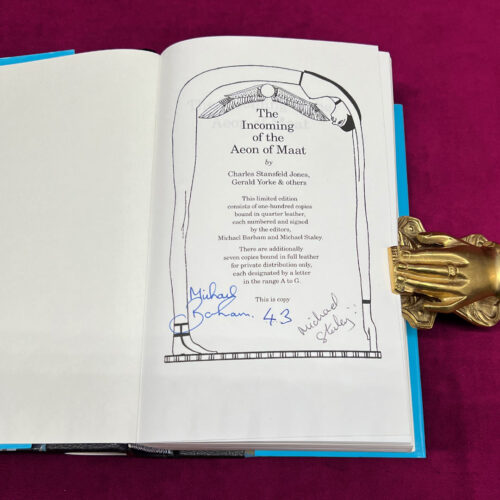 The
Incoming
of the
Aeon of Maat
by
Charles Stansfeld Jones,
Gerald Yorke & others
This limited edition
consists of one-hundred copies
bound in quarter leather,
each numbered and signed
by the editors,
Michael Barham and Michael Staley.
There are additionally
seven copies bound in full leather
for private distribution only,
each designated by a letter
in the range A to G.
This is copy
Michael
Barham. 43
Michael
Staley